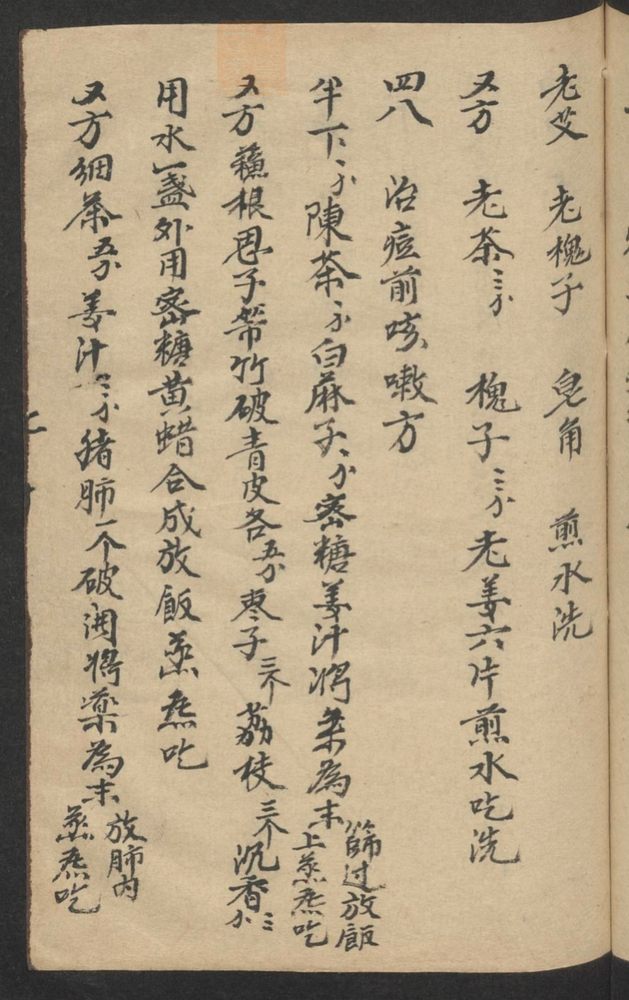 老艾 老槐子 皂角 煎水洗
又方 老茶三分 槐子三分 老姜六片煎水吃洗
四八 治痘前咳嗽方
半下二分陳茶二分白麻子二分密糖姜汁将茶為末篩过放飯上蒸𤇆吃
又方 蘓根思子箒竹破青皮各五分枣子三个荔枝三个沉香二分
用水一盏外用密糖黄蜡合成放飯蒸𤇆吃
又方細茶五分姜汁二分猪肺一个破開将藥為末放肺内蒸𤇆吃